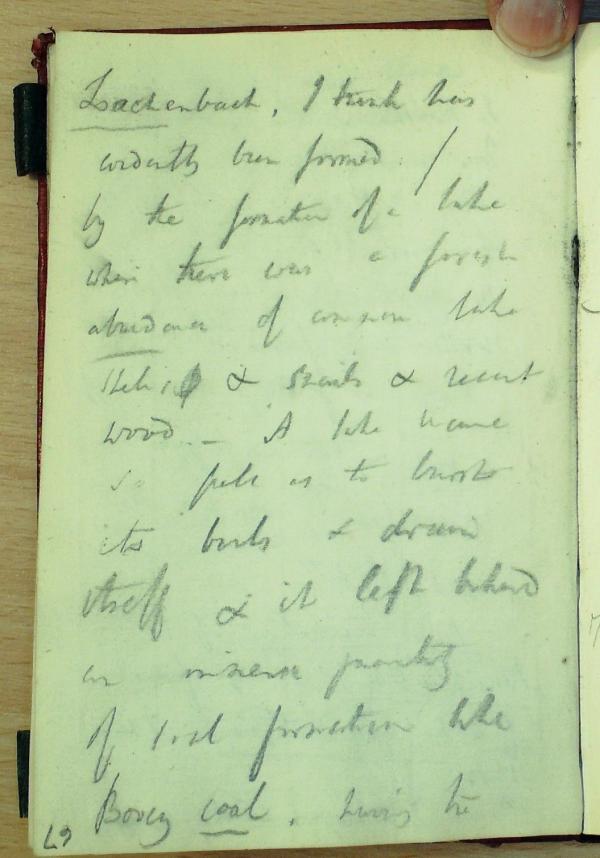 Lachenbach, I think has
evidently been formed /
by the formation of a lake
when there was a forest
abundance of common lake
Helix & snails & recent
wood – A lake became
so full as to burst
its banks & drain
itself & it left behind
an immense quantity
of coal formation like
Bovey coal, having the
67